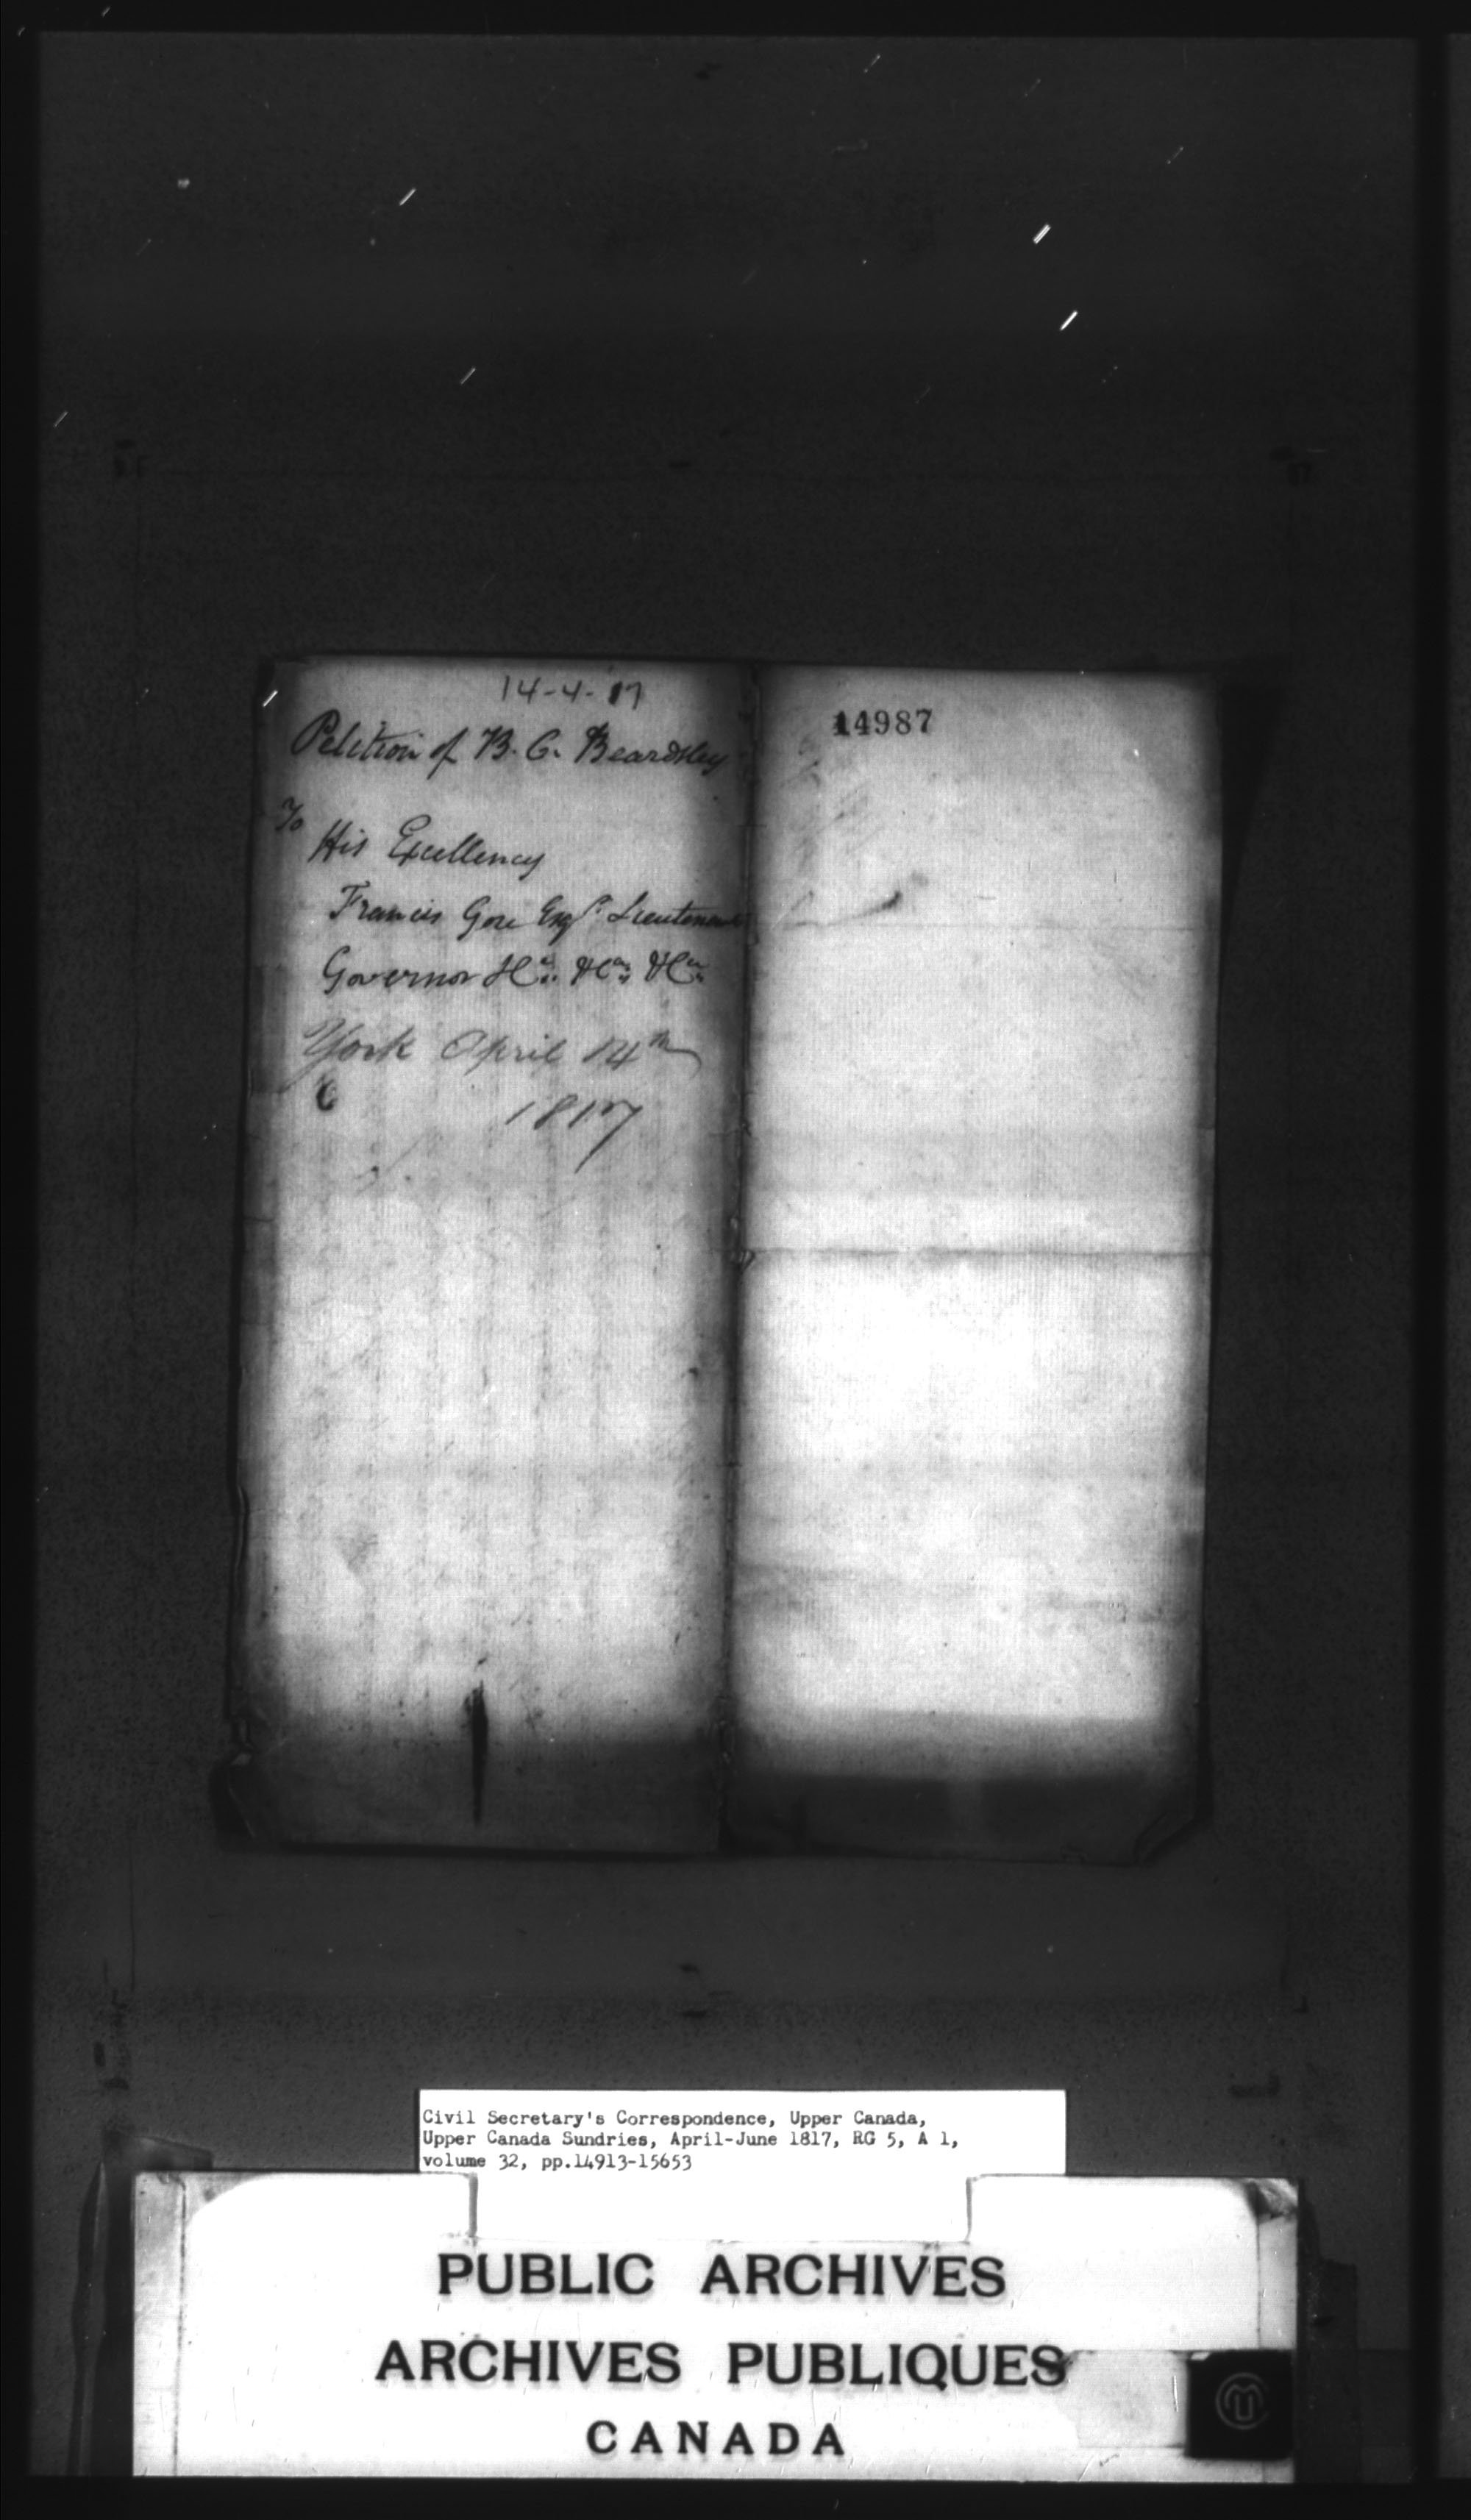 14-4-17
Petition of B. C. Beardsley
To
His Excellency
Francis Gore Esqr. Lieutenant
Governor &c. &c. &c.
York April 14th
1817
14987
Civil Secretary's Correspondence, Upper Canada,
Upper Canada Sundries, April-June 1817, RG 5, A 1,
volume 32, pp.14913-15653
PUBLIC ARCHIVES
ARCHIVES PUBLIQUES
CANADA